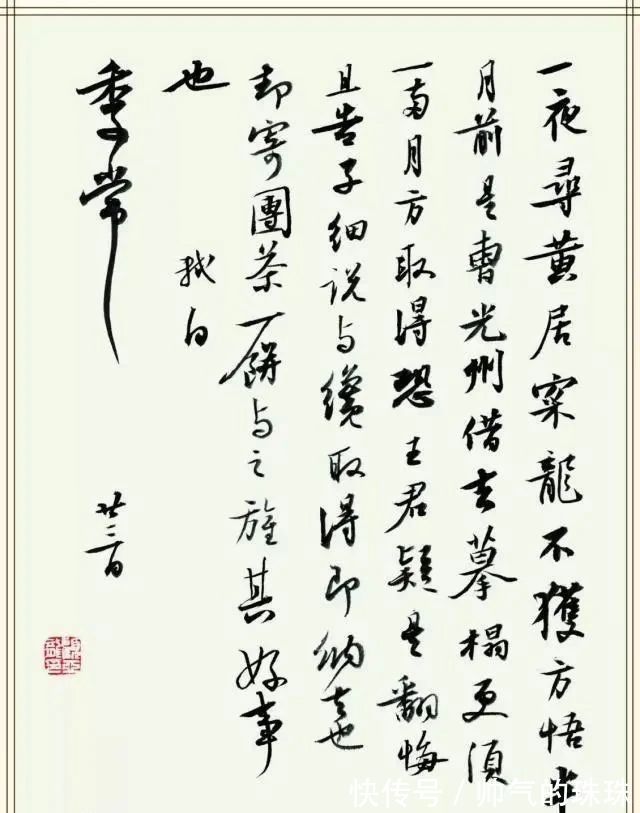 一夜尋黄居寀龍不獲方悟半
月前是曹光州借去摹搨更須
一兩月方取得恐王君疑是翻悔
且告子細說与纔取得即納去也
却寄團茶一餅与之旌其好事
也
軾白
季常
廿三日
快传号 / 帅气的珠珠